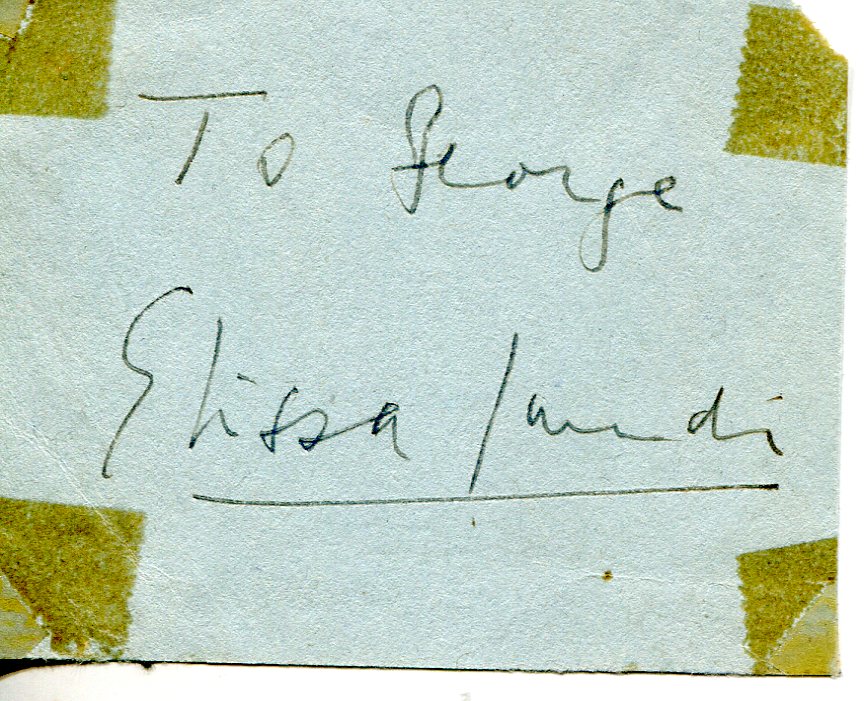 To George
Elissa Landi